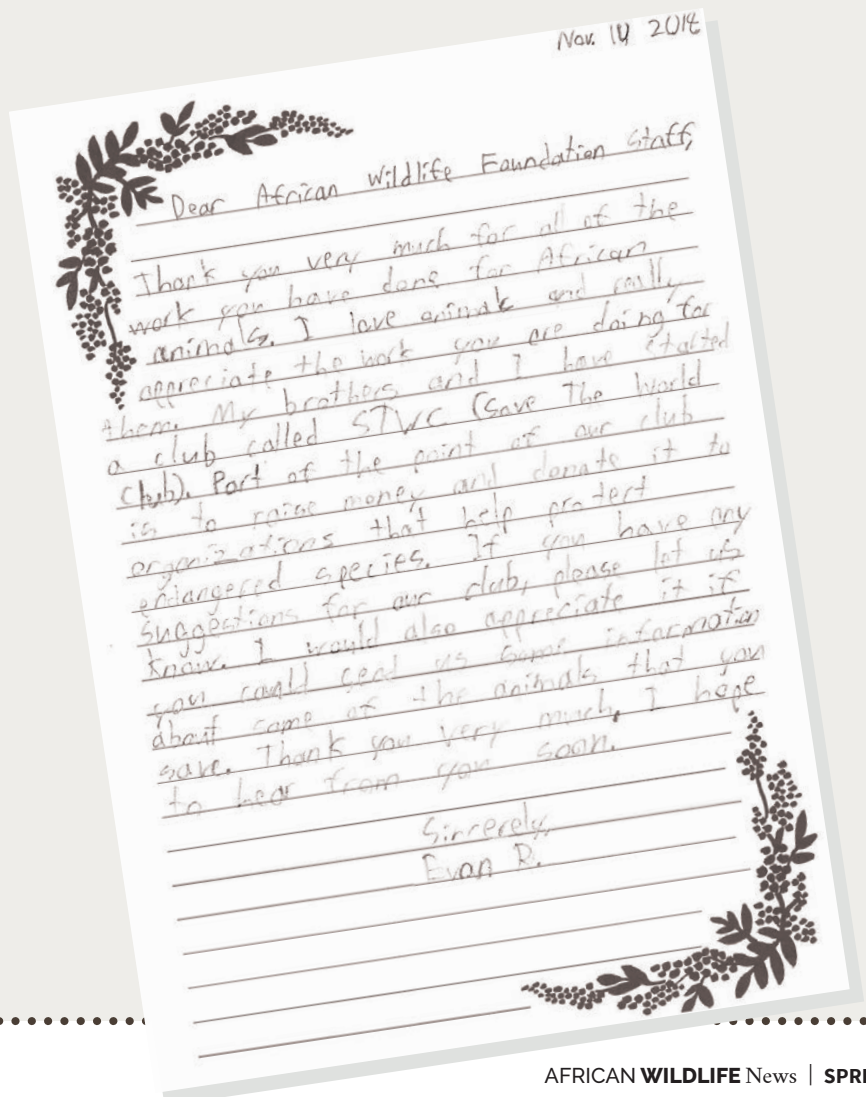 Nov. 2018
Dear African Wildlife Foundation Staff,
Thank you very much for all of the
work you have done for African
animals. I love animals and really
appreciate the work you are doing for
them. My brothers and I have started
a club called STWC (Save The World
Club). Part of the point of our club
is to raise money and donate it to
organizations that help protect
endangered species. If you have any
suggestions for our club, please let us
know. I would also appreciate it if
you could send us some information
about some of the animals that you
save. Thank you very much. I hope
to hear from you soon.
Sincerely,
Evan R.
AFRICAN WILDLIFE News | SPRI